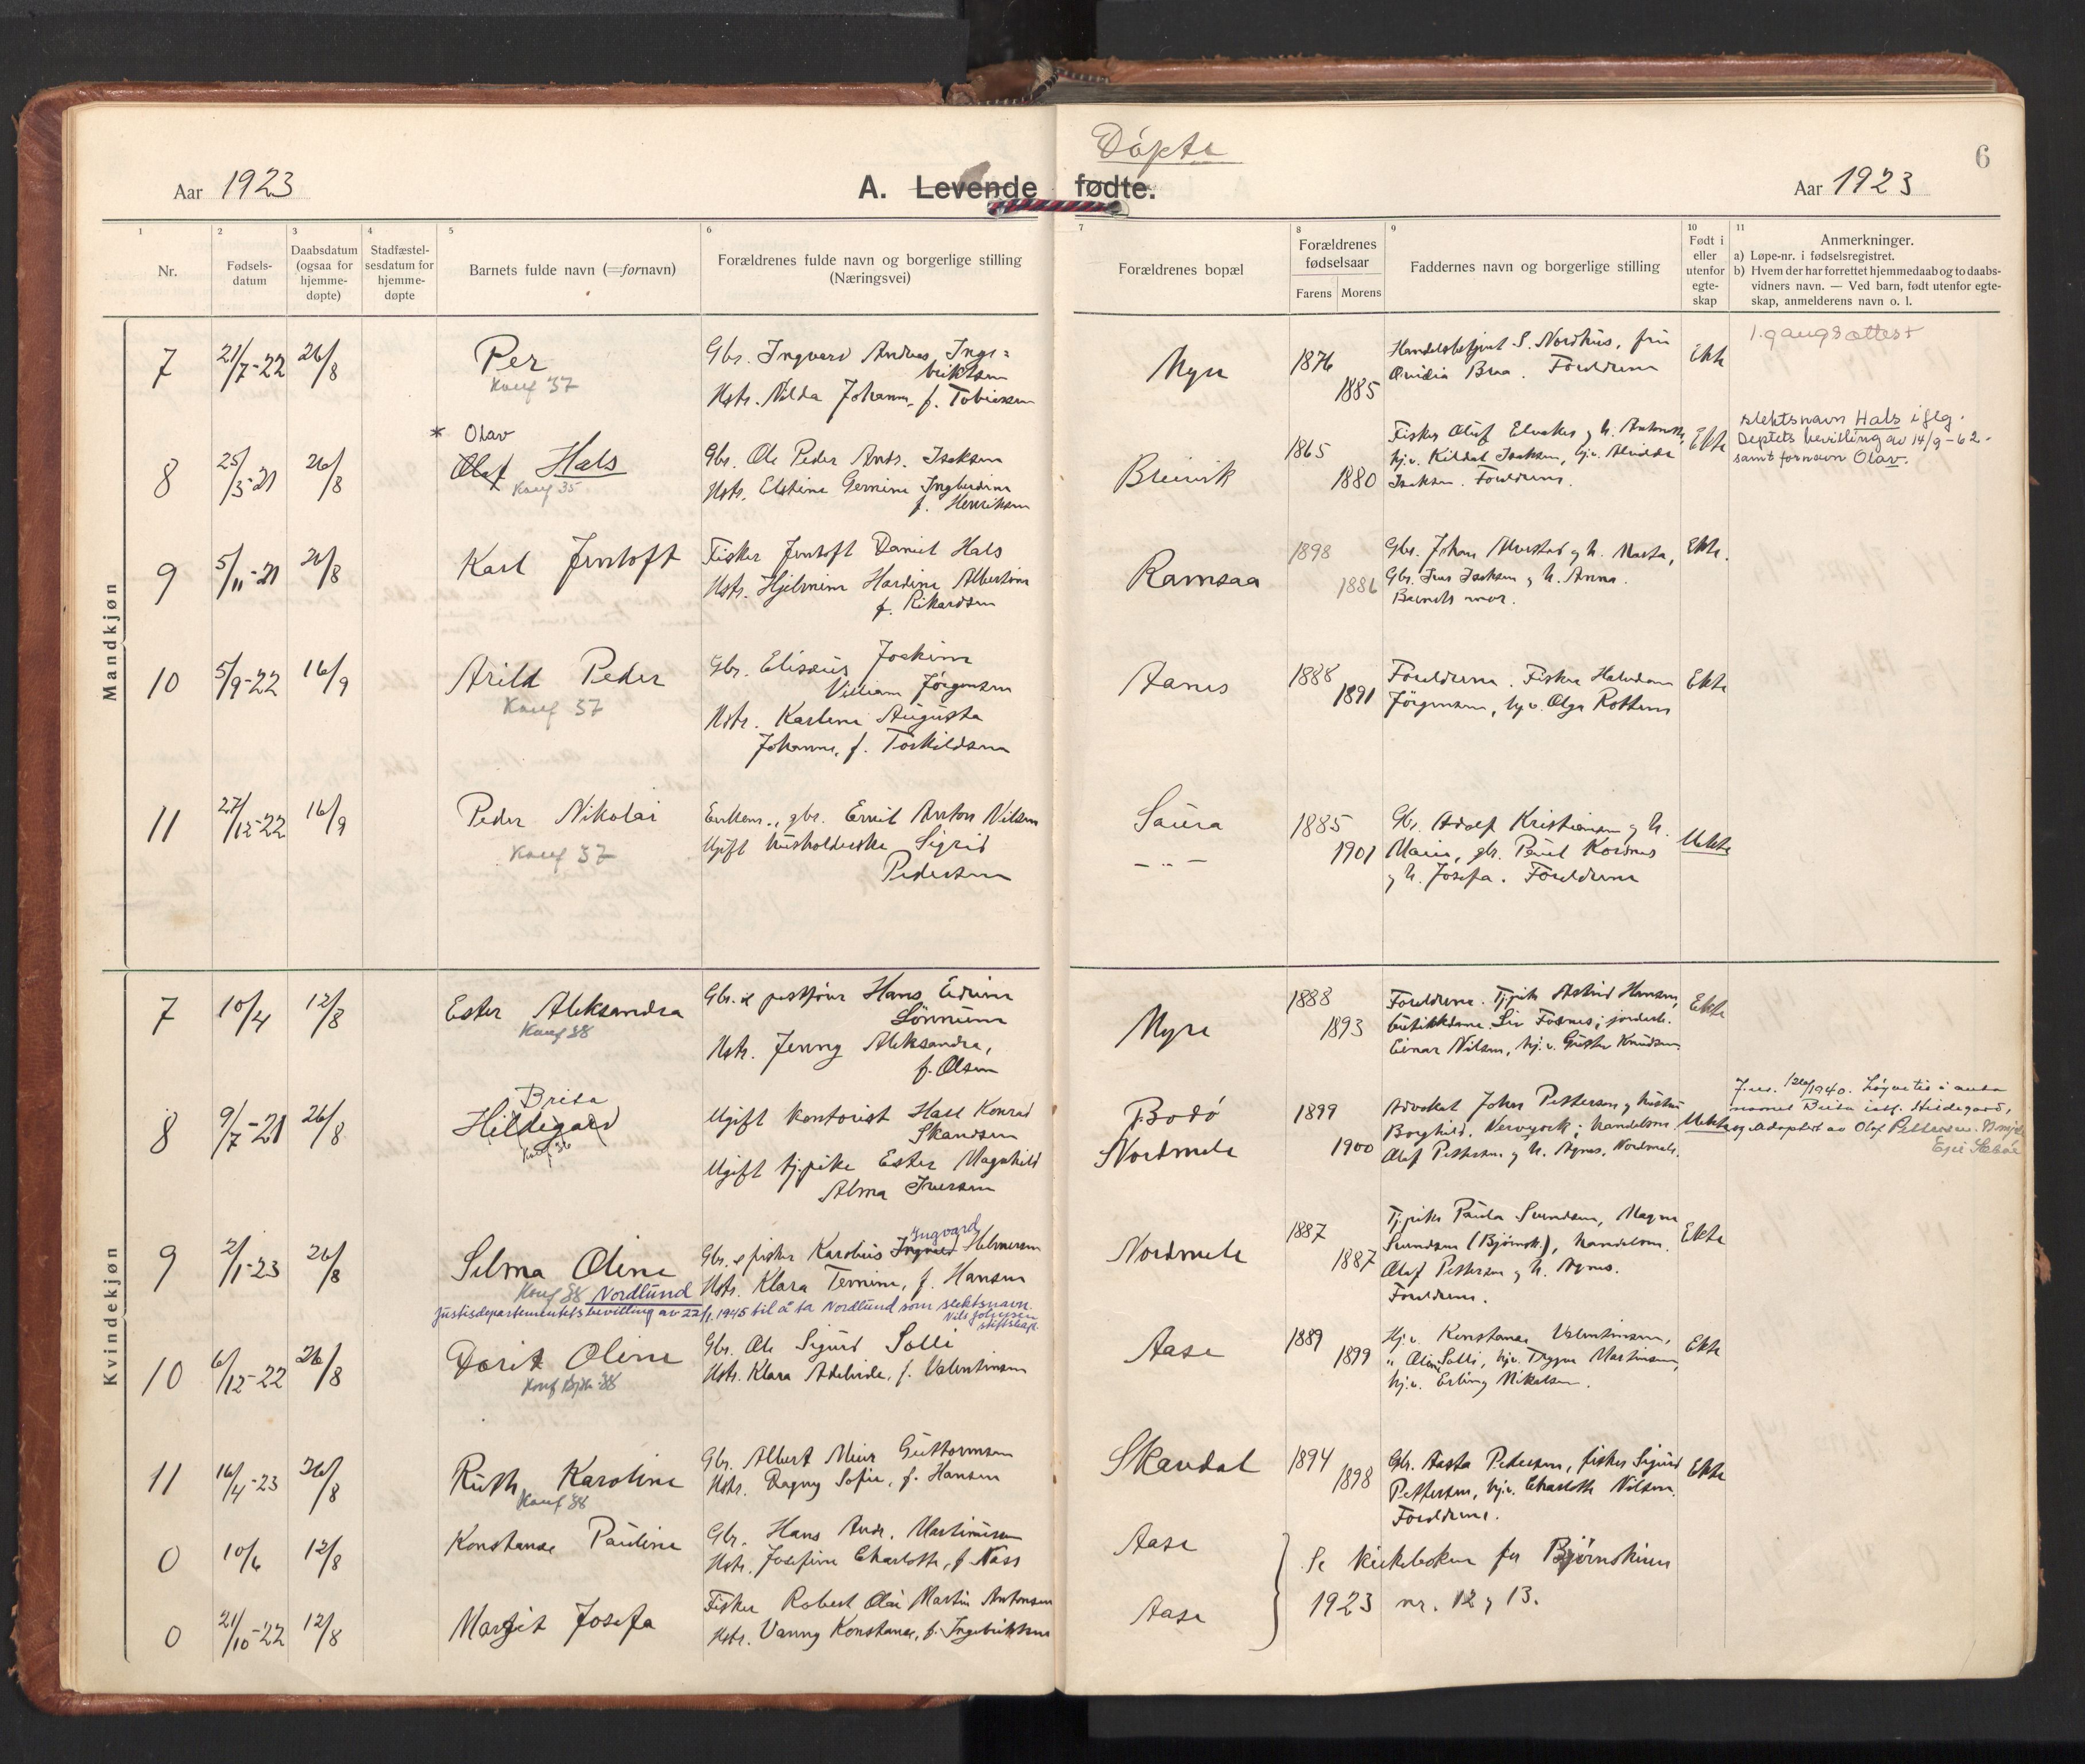 Døpte
6
Aar 1923
A. Levende fødte.
Aar 1923
1
2
3
4
5
6
7
8
9
10
11
Nr.
Fødsels-
datum
Daabsdatum
(ogsaa for
hjemme-
døpte)
Stadfæstel-
sesdatum for
hjemme-
døpte
Barnets fulde navn (=fornavn)
Forældrenes fulde navn og borgerlige stilling
(Næringsvei)
Forældrenes bopæl
Forældrenes
fødselsaar
Farens Morens
Faddernes navn og borgerlige stilling
Født i
eller
utenfor
egte-
skap
Anmerkninger.
a) Løpe-nr. i fødselsregistret.
b) Hvem der har forrettet hjemmedaab og to daabs-
vidners navn. — Ved barn, født utenfor egte-
skap, anmelderens navn o. l.
Mandkjøn
7 21/7-22 26/8 Per
Konf 37
Gbr. Ingvard Andreas Inge=
briktsen
Hstr. Nilda Johanna, f. Tobiassen
Myre 1876
1885
Handelsbetjent S. Nordhus, fru
Ovidia Braa. Foreldrene
Ekte
1. gangs attest
* Olav
8 25/3-21 26/8 Olaf Hals
Konf 35
Gbr. Ole Peder Andr. Isaksen
Hstr. Elstine Gernine Ingberdine
f. Henriksen
Breivik 1865
1880
Fisker Oluf Elvaker og h. Antonette,
hj.v. Kildal Isaksen, hj.v. Alvilde
Isaksen. Foreldrene.
Ekte
slektsnavn Hals iflg.
Deptets bevilling av 14/9-62-
samt fornavn Olav.
9 5/11-21 26/8 Karl Jentoft
Fisker Jentoft Daniel Hals
Hstr. Hjelmine Hardine Albertine
f. Rikardsen
Ramsaa 1898
1886
Gbr. Johan Alvestad og h. Marta,
Gbr. Jens Isaksen og h. Anna.
Barnets mor.
Ekte.
10 5/9-22 16/9 Arild Peder
Konf 37
Gbr. Elisæus Joakim
Villiam Jørgensen
Hstr. Karleni Augusta
Johanna, f. Torkildsen
Aanes 1888
1891
Foreldrene. Fisker Halvdan
Jørgensen, hj.v. Olga Rottem
Ekte
11 27/12-22 16/9 Peder Nikolai
Konf 37
Enkem., gbr. Emil Anton Nilsen
Ugift husholderske Sigrid
Pedersen
Saura
- " -
1885
1901
Gbr. Adolf Kristiansen og h.
Marie, gbr. Paul Kornes
og h. Josefa. Foreldrene
Uekte
Kvindekjøn
7 10/4 12/8 Ester Aleksandra
Konf 38
Gbr. & postfører Hans Edvin
Sørnum
Hstr. Jenny Aleksandra,
f. Olsen
Myre 1888
1893
Foreldrene. Tj.pike Astrid Hansen,
butikkdame Liv Fosnes; jordarb.
Einar Nilsen, hj.v. Gustav Knudsen.
Ekte
Brita
8 9/7-21 26/8 Hildegard
Konf 36
Ugift kontorist Hall Konrad
Skandsen
Ugift tj.pike Ester Magnhild
Alma Iversen
Bodø
Nordmela
1899
1900
Advokat John Pettersen og hustru
Borghild, Newyork; handelsm.
Olaf Pettersen og h. Agnes, Nordmela.
Uekte
J.nr. 126/1940. Løyve til å anta
namnet Brita istf. Hildegard,
og adoptert av Olaf Pettersen.
9 2/1-23 26/8 Selma Oline
Konf 38 Nordlund
Ingvard
Gbr. & fisker Karolius Ingvald Helmersen
Hstr. Klara Ternine, f. Hansen
Justisdepartementets bevilling av 22/1. 1945 til å ta Nordlund som slektsnavn.
Nils Johnsen
Nordmela 1887
1887
Tj.pike Paula Svendsen, Magna
Svendsen (Bjørnsk.), handelsm.
Olaf Pettersen og h. Agnes.
Foreldrene.
Ekte
10 6/12-22 26/8 Dorit Oline
Konf Bjsk 38
Gbr. Ole Sigurd Solli
Hstr. Klara Adelinde, f. Valentinsen
Aase 1889
1899
Hj.v. Konstanse Valentinsen,
" Oline Solli, hj.v. Trygve Martinsen,
hj.v. Erling Nikolaisen.
Ekte
11 16/4-23 26/8 Ruth Karoline
Konf 38
Gbr. Albert Meier Guttormsen
Hstr. Dagny Sofie, f. Hansen
Skavdal 1894
1898
Gbr. Aasta Pedersen, fisker Sigurd
Pettersen, hj.v. Charlotte Nilsen.
Foreldrene.
Ekte
0 10/6 12/8 Konstanse Pauline
Gbr. Hans Andr. Martinussen
Hstr. Josefine Charlotte, f. Næss
Aase
Se kirkeboken for Bjørnskinn
1923 nr. 12 og 13.
0 21/10-22 12/8 Margit Josefa
Fisker Robert Olai Martin Antonsen
Hstr. Vanny Konstanse, f. Ingebriktsen
Aase